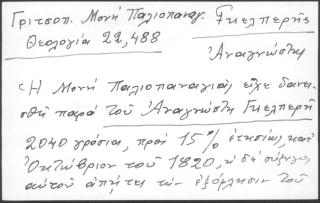 Γριτσοπ. Μονή Παλιοπαναγ. Γκελπερῆς
Θεολογία 22,488
Ἀναγνώστης
Ἡ Μονή Παλιοπαναγιᾶς εἶχε δανει-
σθῆ παρά τοῦ Ἀναγνώστη Γκελπερῆ
2040 γρόσια, πρός 15% ἐτησίως, κατ'
Ὀκτώβριον τοῦ 1820, ἡ δέ σύζυγος
αὐτοῦ ἀπῄτει τήν ἐξόφλησιν τοῦ